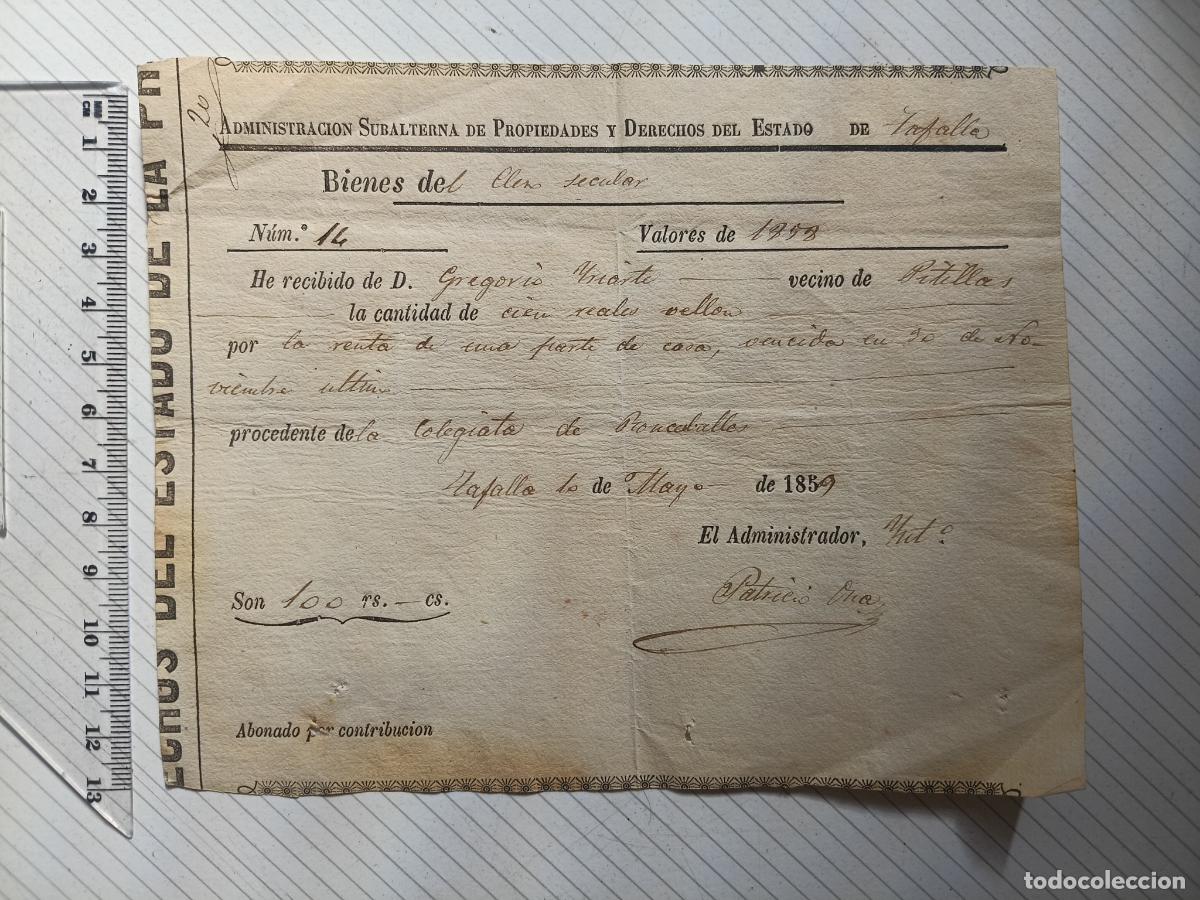 ECHOS DEL ESTADO DE LA PR
20
ADMINISTRACION SUBALTERNA DE PROPIEDADES Y DERECHOS DEL ESTADO DE Tafalla
Bienes del Clero secular
Núm.° 14
Valores de 1858
He recibido de D. Gregorio Yriarte vecino de Pitillas
la cantidad de cien reales vellon
por la renta de una parte de casa, vencida en 30 de No-
viembre ultimo
procedente de la Colegiata de Roncesvalles
Tafalla 10 de Mayo de 1859
El Administrador, Ynt.°
Patricio
Son 100 rs. — cs.
Abonado por contribucion
CM 1 2 3 4 5 6 7 8 9 10 11 12 13
todocoleccion